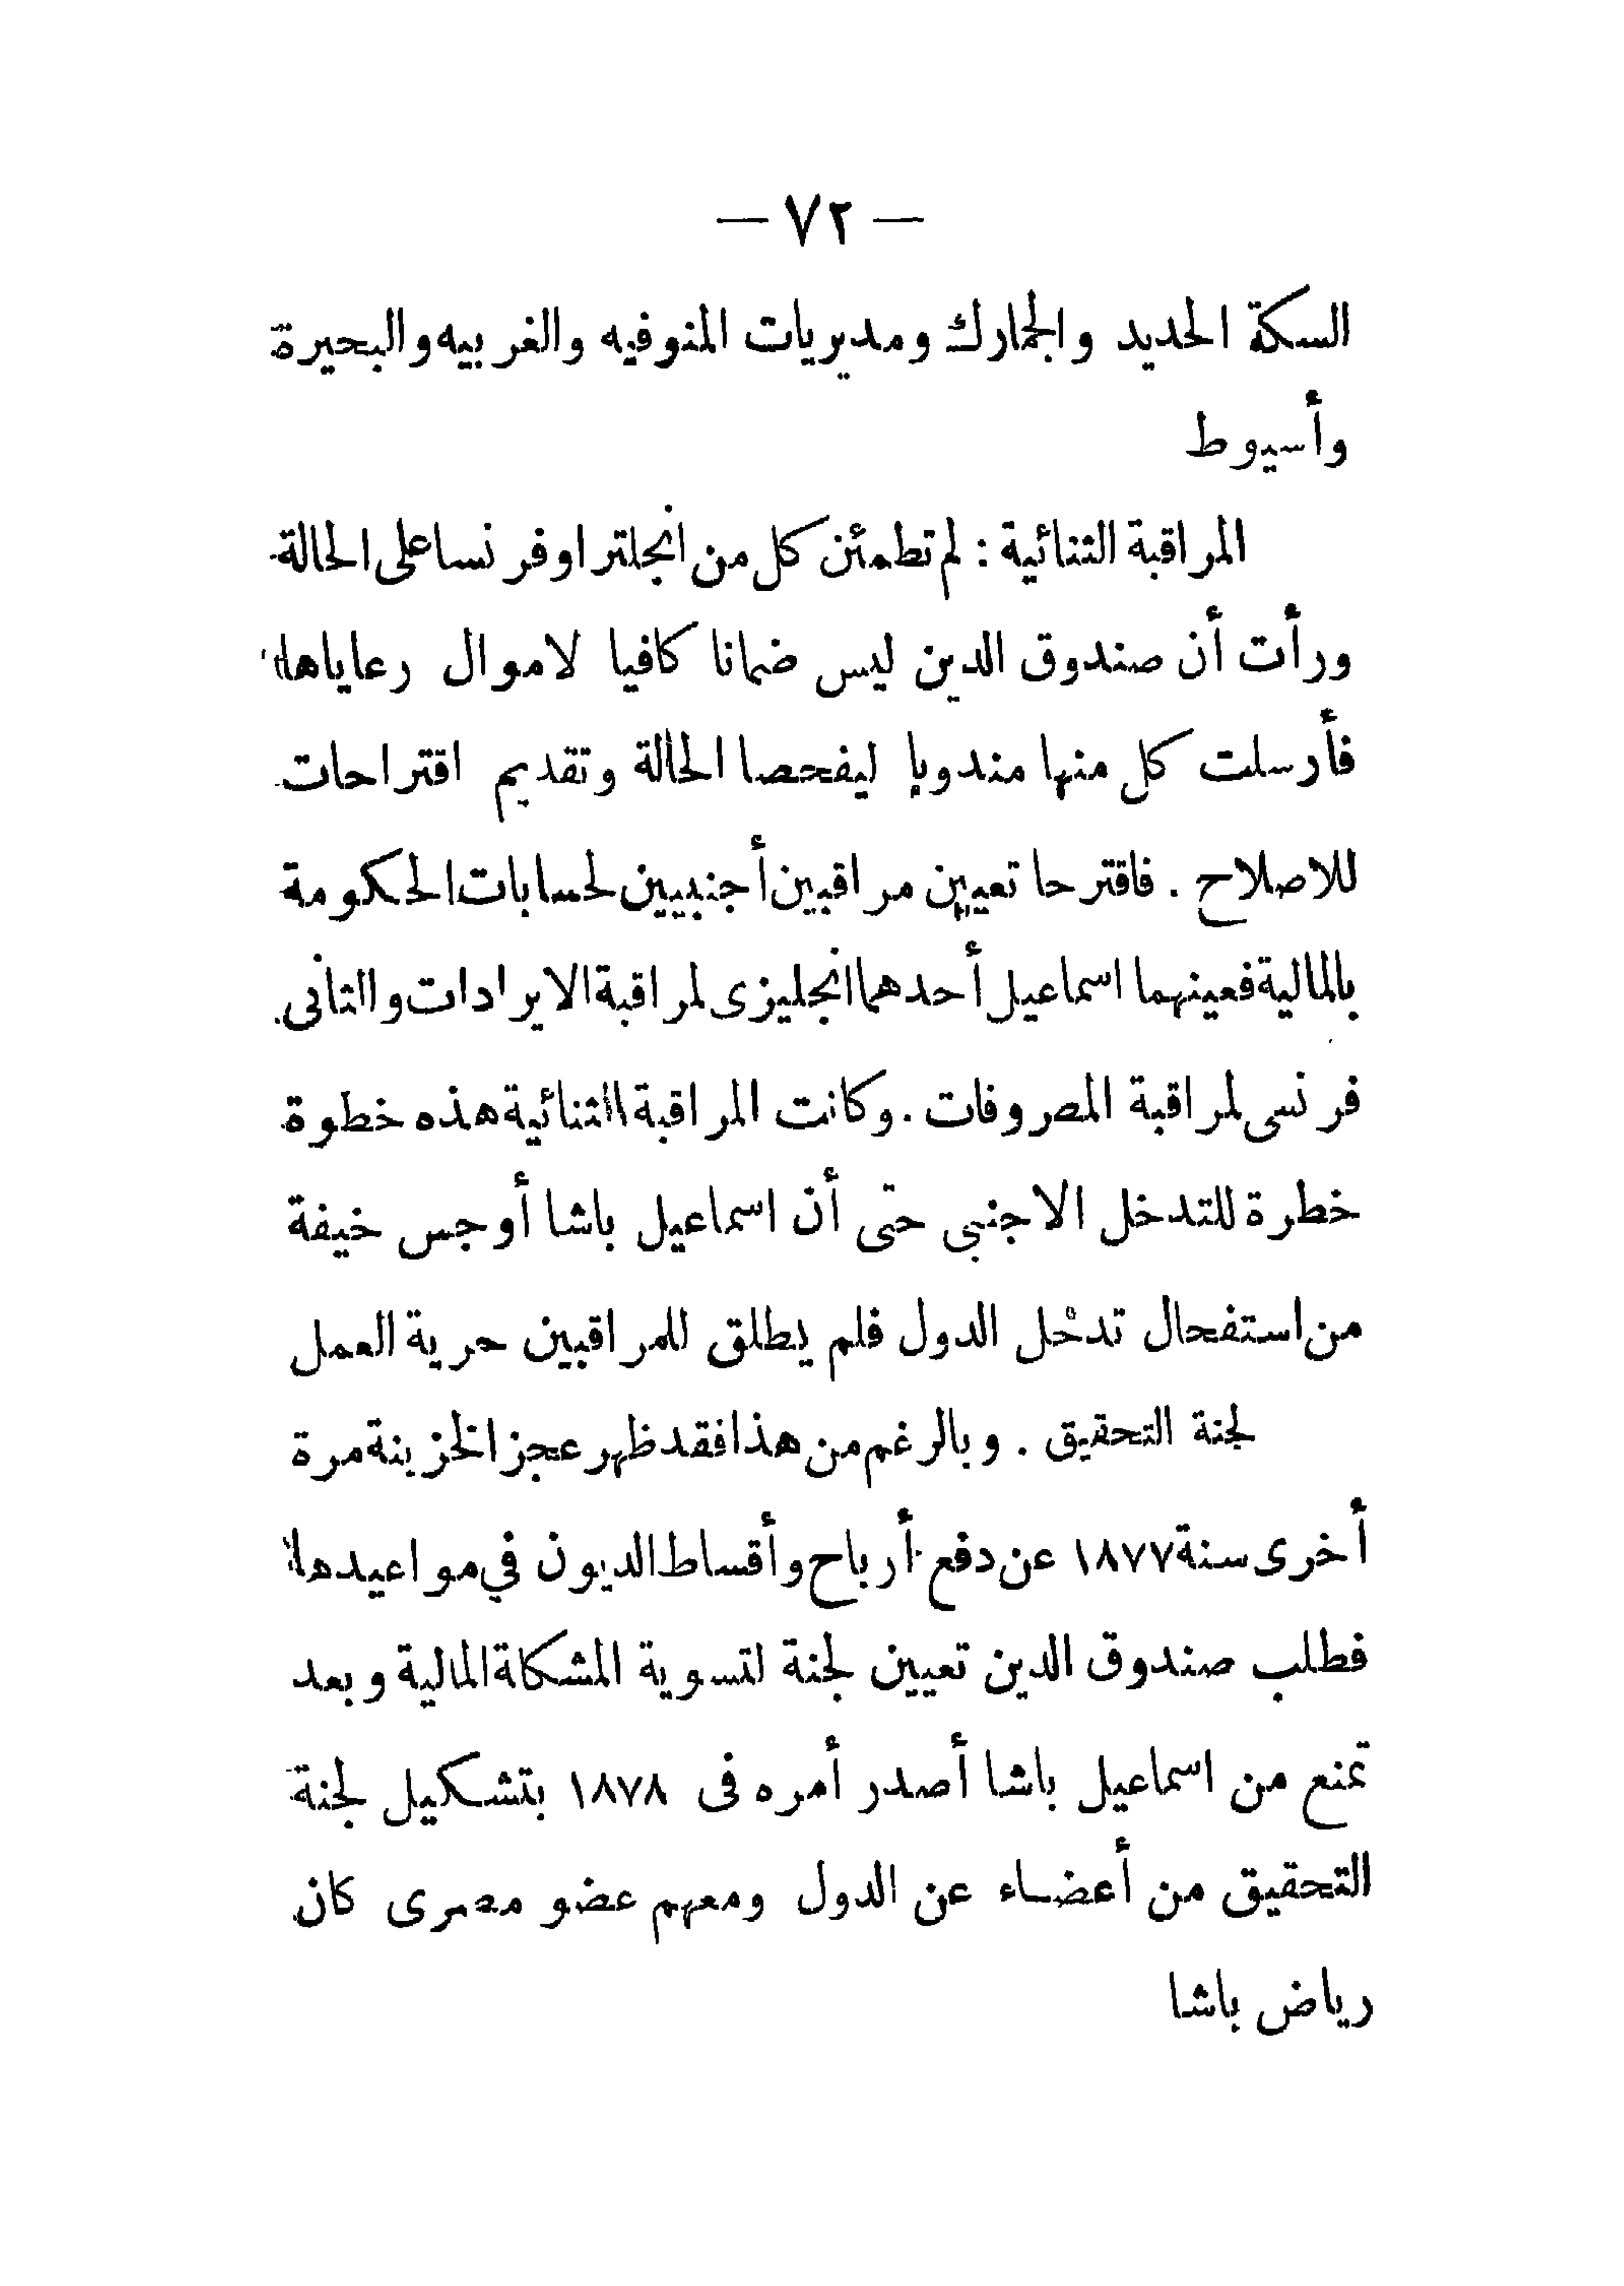 — ٧٢ —
السكة الحديد والجمارك ومديريات المنوفيه والغربيه والبحيرة
وأسيوط
المراقبة الثنائية : لم تطمئن كل من انجلترا وفرنسا على الحالة
ورأت أن صندوق الدين ليس ضمانا كافيا لاموال رعاياها
فأرسلت كل منها مندوبا ليفحصا الحالة وتقديم اقتراحات
للاصلاح . فاقترحا تعيين مراقبين أجنبيين لحسابات الحكومة
بالمالية فعينهما اسماعيل أحدهما انجليزى لمراقبة الايرادات والثانى
فرنسى لمراقبة المصروفات . وكانت المراقبة الثنائية هذه خطوة
خطرة للتدخل الاجنبى حتى أن اسماعيل باشا أوجس خيفة
من استفحال تدخل الدول فلم يطلق للمراقبين حرية العمل
لجنة التحقيق . وبالرغم من هذا فقد ظهر عجز الخزينة مرة
أخرى سنة ١٨٧٧ عن دفع أرباح وأقساط الديون في مواعيدها
فطلب صندوق الدين تعيين لجنة لتسوية المشكلة المالية وبعد
تمنع من اسماعيل باشا أصدر أمره فى ١٨٧٨ بتشكيل لجنة
التحقيق من أعضاء عن الدول ومعهم عضو مصرى كان
رياض باشا